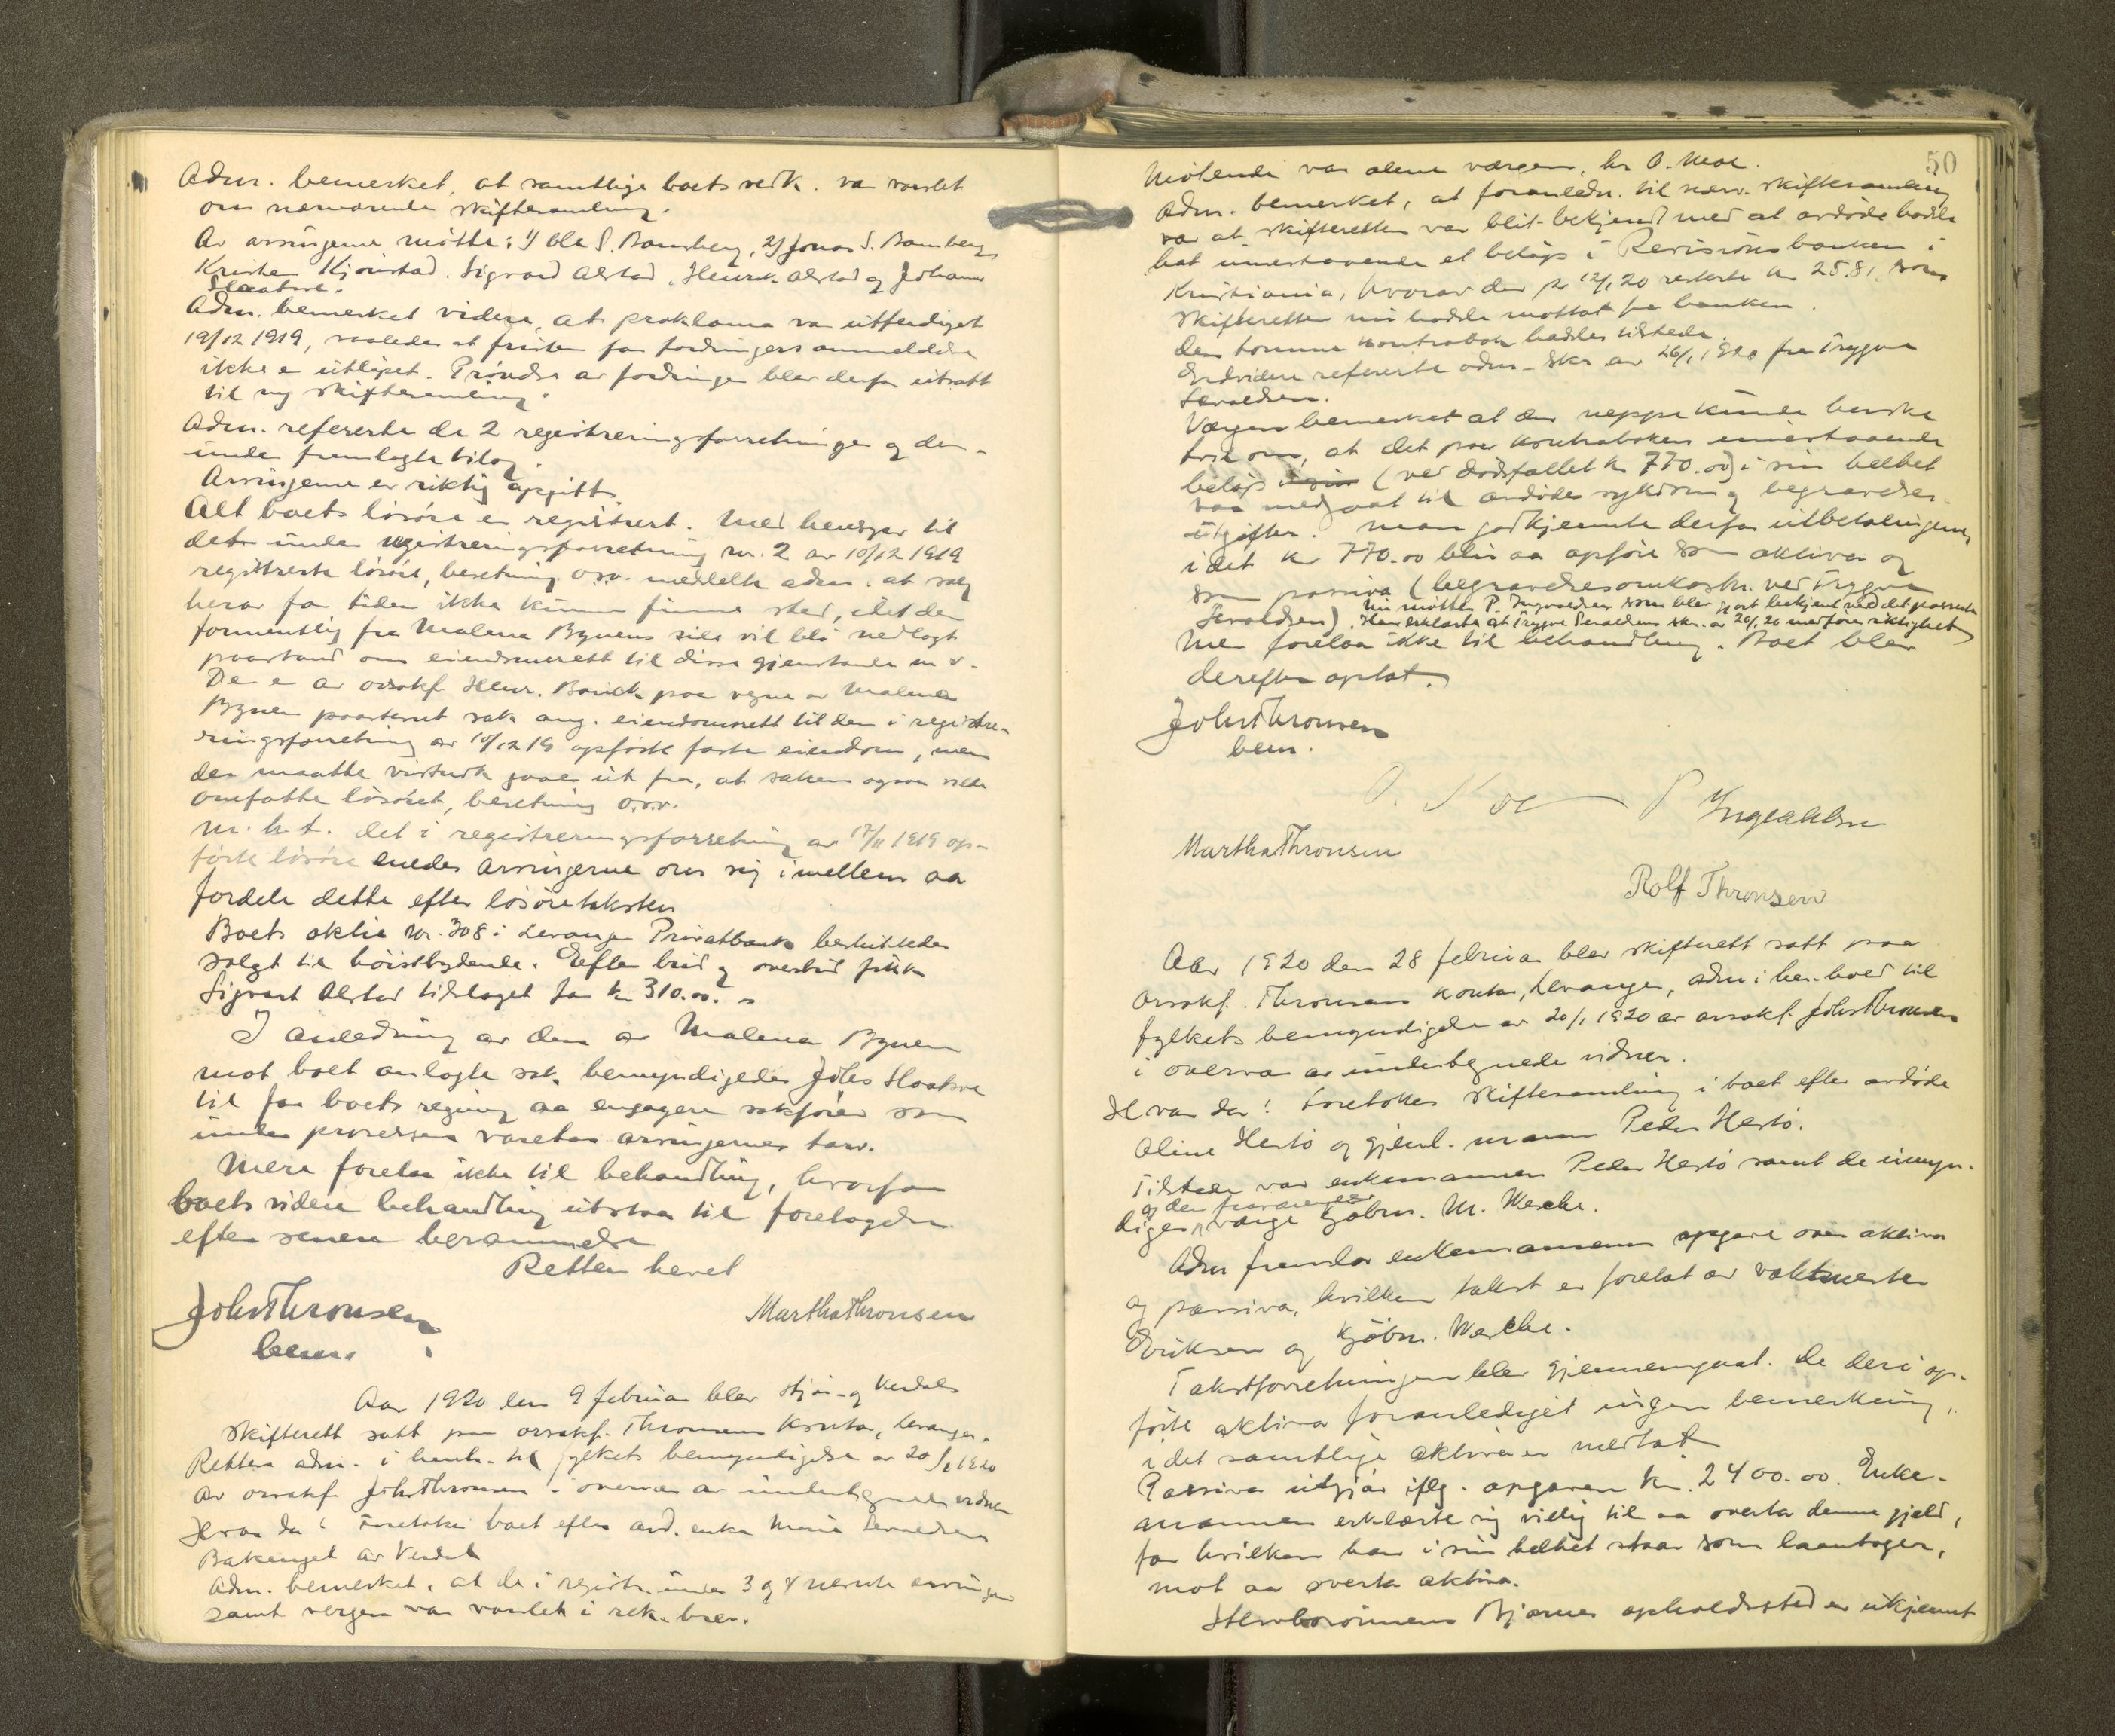 Adm. bemerket, at samtlige boets vedk. var varslet
om nærværende skiftesamling.
Av arvingerne møtte: 1) Ole S. Bamberg, 2) Jonas S. Bamberg,
Kristen Kjønstad, Sigvard Alstad, Henrik Alstad og Johann
Slaatsve.
Adm. bemerket videre, at proklama var utferdiget
19/12 1919, saaledes at fristen for fordringers anmeldelse
ikke er utløpet. Prøvelse av fordringer blev derfor utsatt
til ny skiftesamling.
Adm. refererte de 2 registreringsforretninger og den-
under fremlagte bilag.
Arvingerne er riktig opgitt.
Alt boets løsøre er registrert. Med hensyn til
det under registreringsforretning nr. 2 av 10/12 1919
registrerte løsøre, besetning o.s.v. meddelte adm. at salg
herav for tiden ikke kunne finne sted, idet der
formentlig fra Malena Bynens side vil bli nedlagt
paastand om eiendomsrett til disse gjenstande m.v.
De er av ovsakf. Henr. Bauck paa vegne av Malena
Bynen paastevnt sak ang. eiendomsrett til den i registre-
ringsforretning av 10/12 19 opførte faste eiendom, men
der maatte visstnok gaaes ut fra, at saken ogsaa vilde
omfatte løsøret, besetning o.s.v.
M.h.t. det i registreringsforretning av 17/11 1919 op-
førte løsøre enedes arvingerne om sig imellem aa
fordele dette efter løsøretaksten
Boets aktie nr. 308 i Levanger Privatbank besluttedes
solgt til høistbydende. Efter bud og overbud fikk
Sigvart Alstad tilslaget for kr. 310.00.
I anledning av den av Malena Bynen
mot boet anlagte sak, bemyndigedes Johs Slaatsve
til for boets regning aa engagere sakfører som
under prosessen varetar arvingernes tarv.
Mere forelaa ikke til behandling, hvorfor
boets videre behandling utstaar til foretagelse
efter senere berammelse
Retten hevet
Johs Thronsen
bem.
Martha Thronsen
Aar 1920 den 9 februar blev Stjør- og Verdals
skifterett satt paa ovsakf. Thronsens kontor, Levanger.
Retten adm. i henh. til fylkets bemyndigelse av 20/1 1920
av ovsakf Johs Thronsen i overvær av undertegnede vidner
Hvor da: Foretokes boet efter avd. enke Maria Sevaldsen
Bakenget av Verdal
Adm. bemerket, at de i registr. under 3 og 4 nevnte arvinger
samt vergen var varslet i rek. brev.
50
Møtende var alene vergen, hr O. Moe.
Adm. bemerket, at foranledn. til nærv. skiftesamling
var at skifteretten var blit bekjendt med at avdøde hadde
hat innestaaende et beløp i Revisionsbanken i
Kristiania, hvorav der pr 12/1 20 resterte kr 25.81, som
skifteretten nu hadde mottat fra banken.
Den tomme kontrabok haddes tilstede.
Endvidere refererte adm. skr av 26/1 1920 fra Trygve
Sevaldsen.
Vergen bemerket at der neppe kunde herske
tvil om, at det paa kontraboken innestaaende
beløp (ved dødsfallet kr 770.00) i sin helhet
var medgaat til avdødes sykdom og begravelses-
utgifter. Man godkjennte derfor utbetalingene,
idet kr 770.00 blir aa opføre som aktiva og
som passiva (begravelsesomkostn. ved Trygve
Sevaldsen). Nu møtte P. Ingvaldsen som blev gjort bekjent med det passerte
Han erklærte at Trygve Sevaldsens skr. av 26/1 20 medfører riktighet
Mer forelaa ikke til behandling. Boet blev
derefter optat.
Johs Thronsen
bem.
O. Moe P Ingvaldsen
Martha Thronsen
Rolf Thronsen
Aar 1920 den 28 februar blev skifterett satt paa
ovsakf. Thronsens kontor, Levanger, adm i henhold til
fylkets bemyndigelse av 20/1 1920 av ovsakf. Johs Thronsen
i overvær av undertegnede vidner.
Hvor da: Foretokes skiftesamling i boet efter avdøde
Oline Hestø og gjenl. mann Peder Hestø.
Tilstede var enkemannen Peder Hestø samt de umyn-
og den fraværendes
diges verge kjøbm. M. Wesche.
Adm fremla enkemannens opgave over aktiva
og passiva, hvilken takst er foretat av vaktmester
Eriksen og kjøbm. Wesche.
Takstforretningen blev gjennemgaat. De deri op-
førte aktiva foranlediget ingen bemerkning,
idet samtlige aktiva er medtat
Passiva utgjør iflg. opgaven kr. 2400.00. Enke-
mannen erklærte sig villig til aa overta denne gjeld,
for hvilken han i sin helhet staar som laantager,
mot aa overta aktiva.
Stervbosønnens Bjarnes opholdssted er ukjennt